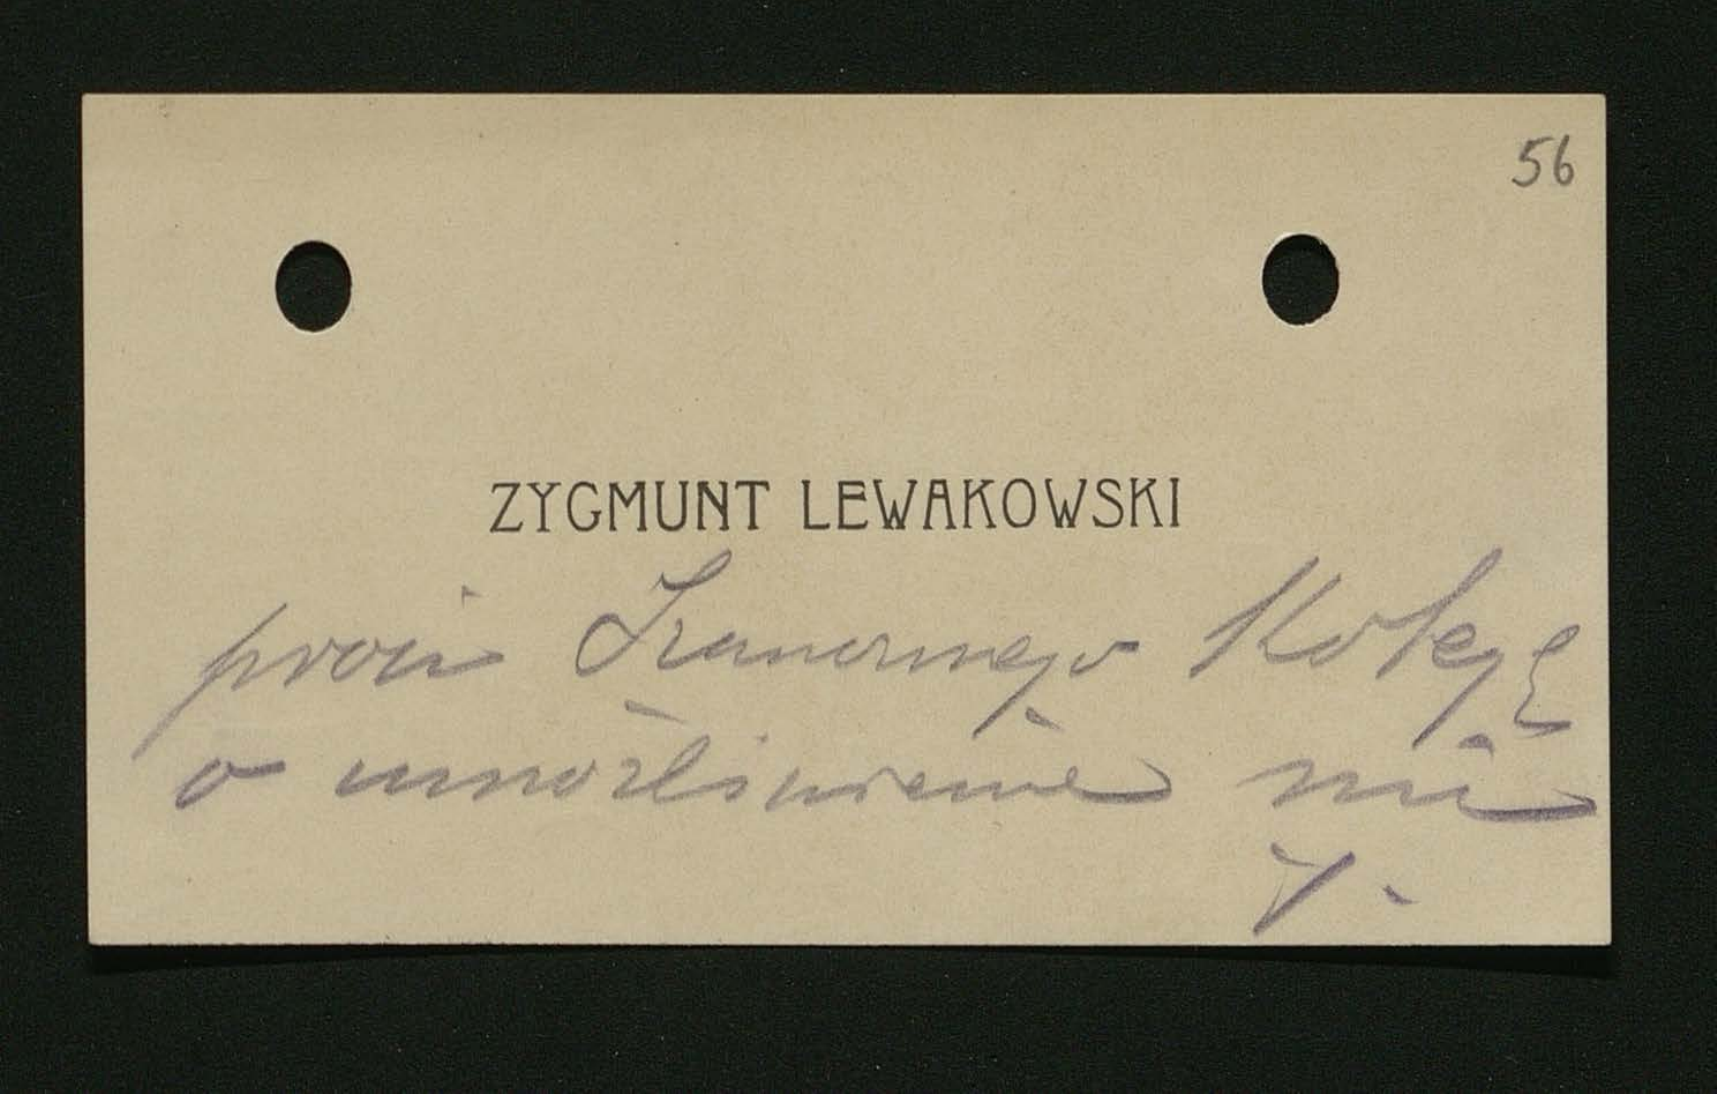 56
ZYGMUNT LEWAKOWSKI
prosi Szanownego Kolegę
o umożliwienie mi